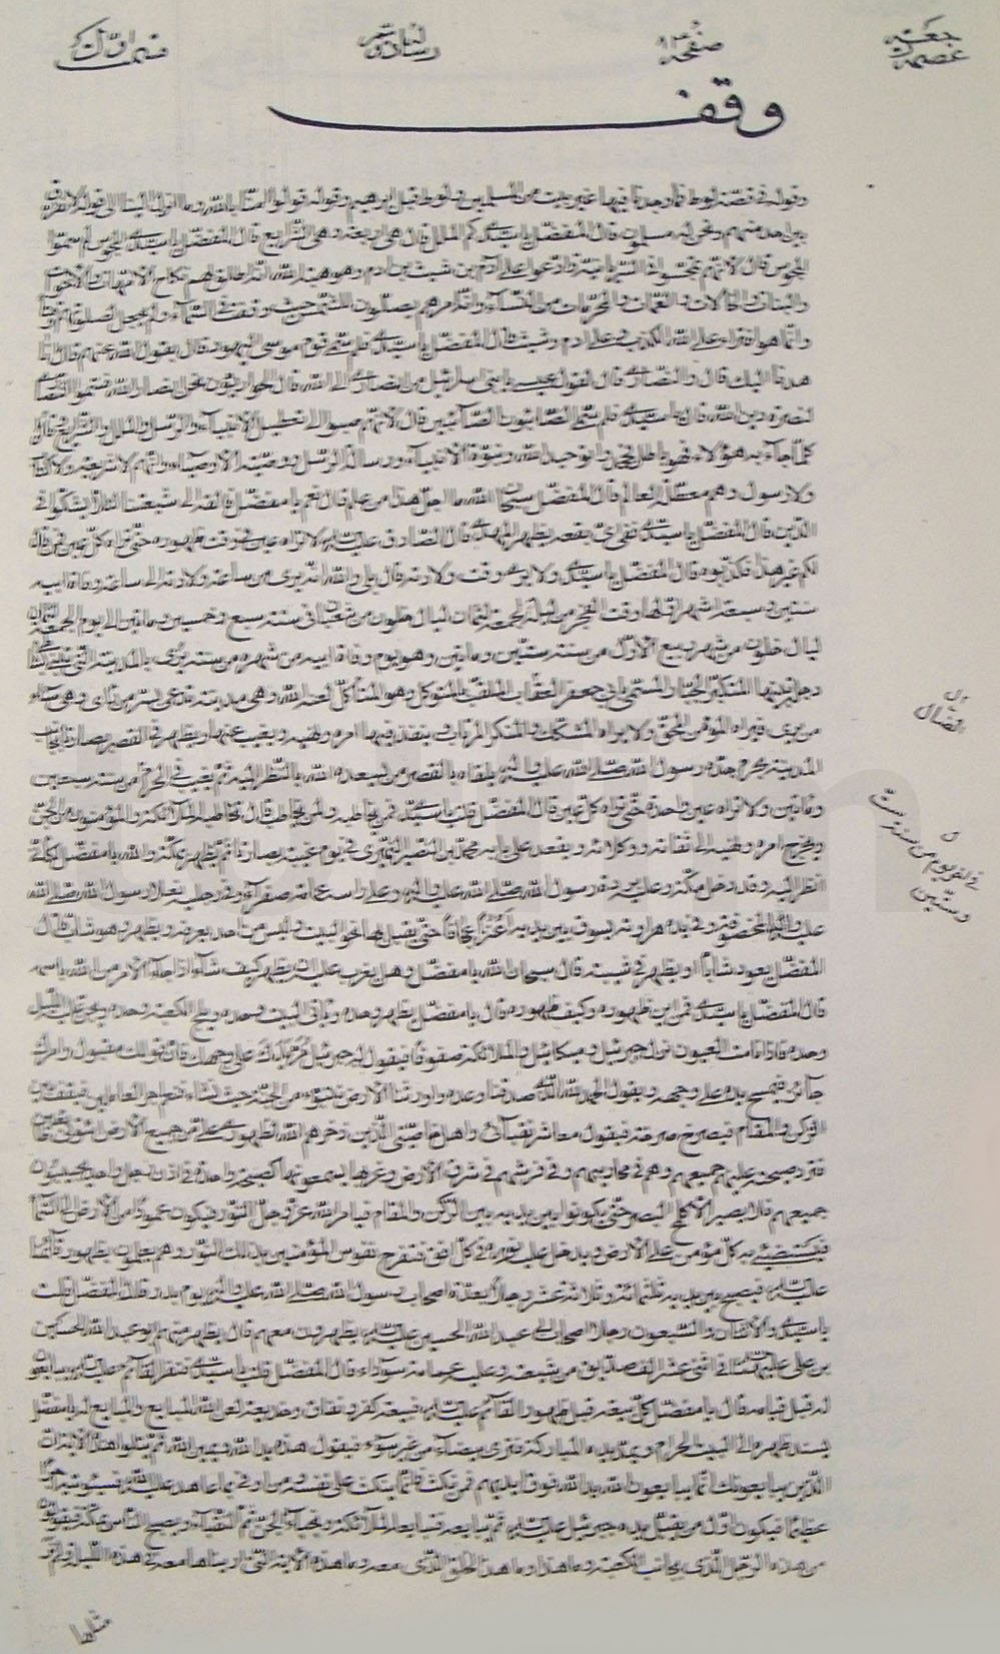 صفحه
وقف
وقوله في قصة لوط فما وجدنا فيها غير بيت من المسلمين ولوط قبل ابرهيم وقوله قولوا امنا بالله وما انزل الينا الى قوله لا نفرق
بين احد منهم ونحن له مسلمون قال المفضل يا سيدي كم الملل قال هي اربعة وهي الشرايع قال المفضل يا سيدي المجوس لم سموا
المجوس قال لانهم تمجسوا في السريانية وادعوا على آدم بن شيث بن ادم وهو هبة الله انه اطلق لهم نكاح الامهات والاخوات
والبنات والخالات والعمات والمحرمات من النساء وانه امرهم يصلون للشمس حيث وقفت في السماء ولم يجعل لصلوتهم وقتا
وانما هو افتراء على الله الكذب وعلى ادم وشيث قال المفضل يا سيدي فلم سمي قوم موسى اليهود قال يقول الله عنهم قالوا انا
هدنا اليك قال والنصارى قال لقول عيسى يا بني اسرائيل من انصاري الى الله قال الحواريون نحن انصار الله فسموا النصارى
لنصرة دين الله قال يا سيدي فلم سمي الصابئون الصابئين قال لانهم صبوا الى تعطيل الانبياء والرسل والملل والشرايع وقالوا
كلما جاء به هؤلاء فهو باطل فجحدوا توحيد الله ونبوة الانبياء ورسالة الرسل ووصية الاوصياء وانهم لا شريعة ولا كتاب
ولا رسول وهم معطلة العالم قال المفضل سبحان الله ما اجل هذا من علم قال نعم يا مفضل فالقه الى شيعتنا لئلا يشكوا في
الدين قال المفضل يا سيدي ففي اي بقعة يظهر المهدي قال الصادق عليه السلام لا تراه عين في وقت ظهوره حتى تراه كل عين فمن قال
لكم غير هذا فكذبوه قال المفضل يا سيدي ولا يرى وقت ولادته قال بلى والله انه يرى من ساعة ولادته الى ساعة وفاة ابيه
سنتين وسبعة اشهر اولها وقت الفجر من ليلة الجمعة لثمان ليال خلون من شعبان سنة سبع وخمسين ومائتين الى يوم الجمعة لثمان
ليال خلون من شهر ربيع الاول من سنة ستين ومائتين وهو يوم وفاة ابيه
من يرى فيراه المؤمن المحق ولا يراه المشكك والمنكر المرتاب وينفذ فيها امره ونهيه ويغيب عنها ويظهر في القصر بصاريا بجانب
المدينة بحرم جده رسول الله صلى الله عليه واله فيلقاه بالقصر من يسعده الله بالنظر اليه ثم يغيب في اخر يوم من سنة
ومائتين ولا تراه عين واحدة حتى تراه كل عين قال المفضل قلت يا سيدي فمن يخاطبه ولمن يخاطب قال تخاطبه الملائكة والمؤمنون من الجن
ويخرج امره ونهيه الى ثقاته ووكلائه ويقعد على بابه محمد بن النصير النميري في يوم غيبته بصاريا ثم يظهر بمكة والله يا مفضل كاني
انظر اليه وقد دخل مكة وعليه بردة رسول الله صلى الله عليه واله وعلى راسه عمامة صفراء وفي رجليه نعلا رسول الله صلى الله
عليه واله المخصوفة وفي يده هراوته يسوق بين يديه اعنزا عجافا حتى يقبل بها نحو البيت وليس من احد يعرفه ويظهر وهو شاب قال
المفضل يعود شابا او يظهر في شيبته قال سبحان الله يا مفضل وهل يغرب عليه ان يظهر كيف شاء اذا جاءه الامر من الله باسمه
قال المفضل يا سيدي فمن اين ظهوره وكيف ظهوره قال يا مفضل يظهر وحده وياتي البيت وحده ويلج الكعبة وحده ويجن عليه الليل
وحده فاذا نامت العيون نزل جبرئيل وميكائيل والملائكة صفوفا فيقول له جبرئيل
جائز فيمسح يده على وجهه ويقول الحمد لله الذي صدقنا وعده واورثنا الارض نتبوء من الجنة حيث نشاء فنعم اجر العاملين فيقف بين
الركن والمقام فيصرخ صرخة فيقول معاشر نقبائي واهل خاصتي الذين ذخرهم الله لظهوري على وجه الارض
فترد صيحته عليهم جميعهم وهم في محاريبهم وفي فرشهم في شرق الارض وغربها يسمعونها كصيحة واحدة في اذن رجل واحد يجيئون
جميعهم فلا يصير الا كلمح البصر حتى يكونوا بين يديه بين الركن والمقام فيامر الله عز وجل النور فيكون عمودا من الارض الى السماء
فيستضيء به كل مؤمن على الارض ويدخل عليه نوره في كل افق فتفرح نفوس المؤمنين بذلك النور وهم يعلمون بظهور قائمنا
عليه السلام فيصبح بين يديه ثلثمائة وثلاثة عشر رجلا بعدة اصحاب رسول الله صلى الله عليه واله يوم بدر قال المفضل قلت
يا سيدي والاثنان والسبعون رجلا اصحاب ابي عبد الله الحسين عليه السلام يظهرون معهم قال يظهر منهم ابو عبد الله الحسين
بن علي عليهما السلام في اثنى عشر الف صديق من شيعته وعليه عمامة سوداء قال المفضل قلت يا سيدي
له قبل قيامه قال يا مفضل كل بيعة قبل ظهور القائم عليه السلام فبيعة كفر ونفاق وخديعة لعن الله المبايع والمبايع له يا مفضل
يسند ظهره الى البيت الحرام ويمد يده المباركة فترى بيضاء من غير سوء فيقول هذه يد الله ويمين الله ثم يتلوا هذه الاية ان
الذين يبايعونك انما يبايعون الله يد الله فوق ايديهم فمن نكث فانما ينكث على نفسه ومن اوفى بما عاهد عليه الله فسيؤتيه اجرا
عظيما فيكون اول من يقبل يده جبرئيل عليه السلام ثم يبايعه فتبايعه الملائكة ونجباء الجن ثم النقباء ويصبح الناس بمكة فيقولون
من هذا الرجل الذي بجانب الكعبة وما هذا وما هذا الخلق الذي معه وما هذه الاية التي اريناها معه في هذه الليلة ولم نر
مثلها